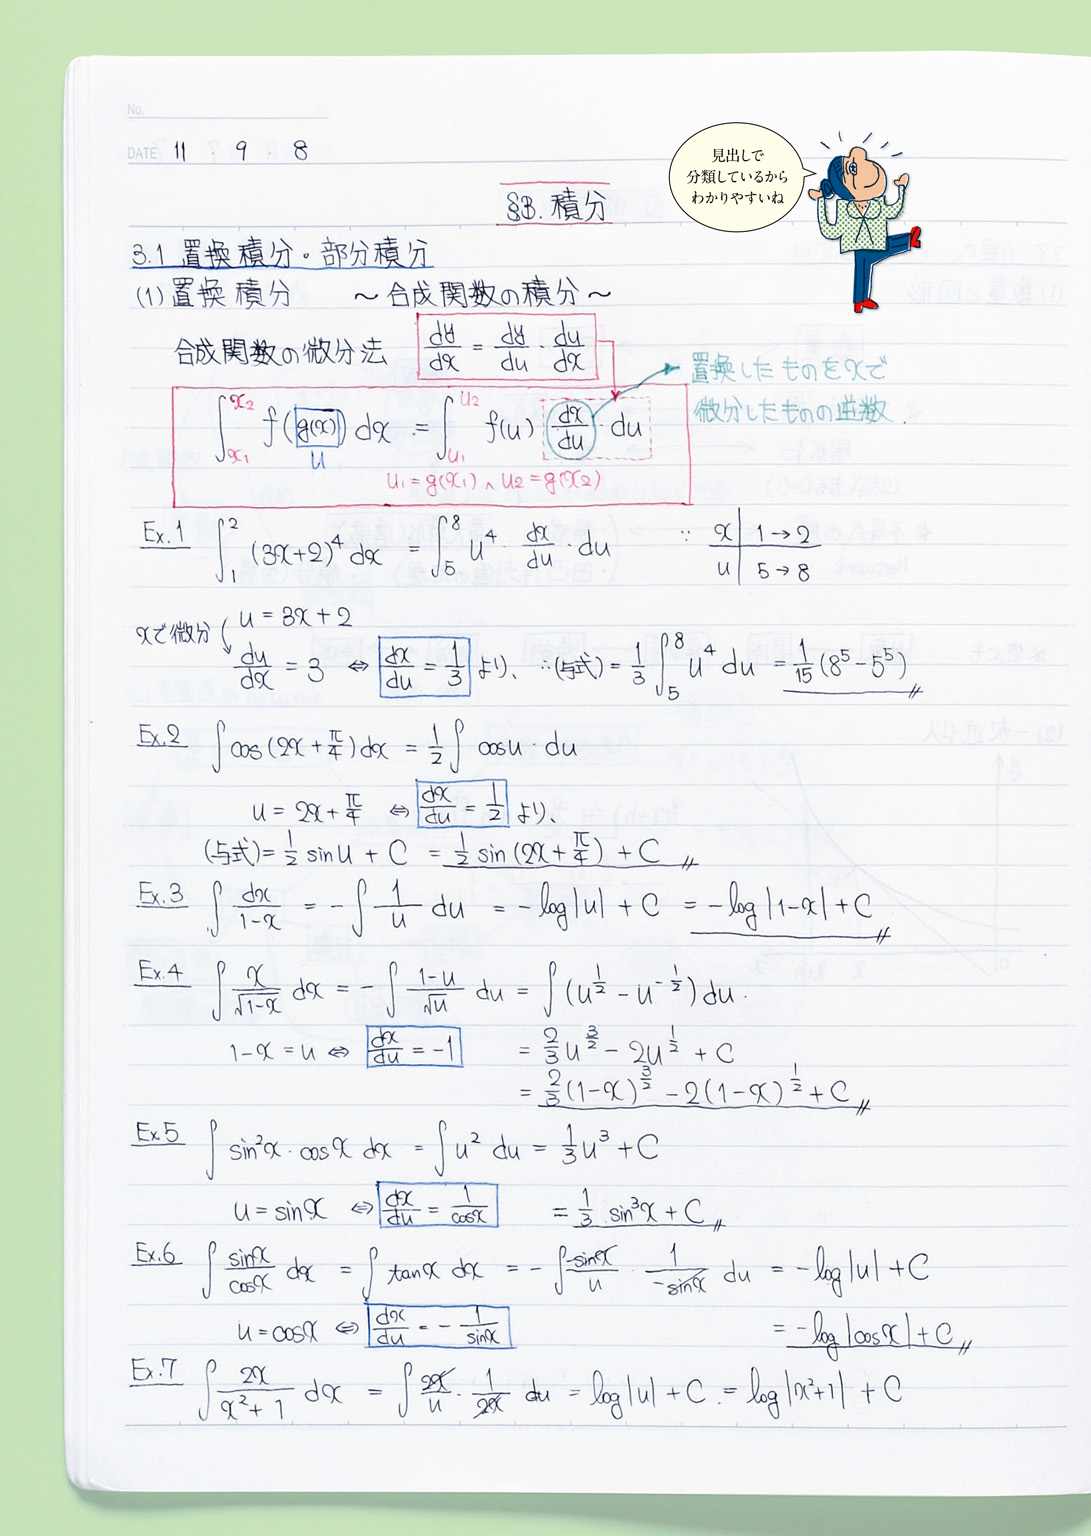 No.
DATE 11 9 8
見出しで
分類しているから
わかりやすいね
§3. 積分
3.1 置換積分・部分積分
(1) 置換積分 〜合成関数の積分〜
合成関数の微分法 dy/dx = dy/du · du/dx
置換したものをxで
微分したものの逆数.
∫_{x1}^{x2} f(g(x)) dx = ∫_{u1}^{u2} f(u) dx/du · du
u
u1 = g(x1) ∧ u2 = g(x2)
Ex.1 ∫_1^2 (3x+2)^4 dx = ∫_5^8 u^4 · dx/du · du ∵ x | 1→2
u | 5→8
u = 3x+2
xで微分 du/dx = 3 ⇔ dx/du = 1/3 より、 ∴(与式) = 1/3 ∫_5^8 u^4 du = 1/15 (8^5 − 5^5)
Ex.2 ∫cos(2x+π/4)dx = 1/2 ∫ cosu · du
u = 2x+π/4 ⇔ dx/du = 1/2 より、
(与式) = 1/2 sinu + C = 1/2 sin(2x+π/4) + C
Ex.3 ∫ dx/(1−x) = −∫ 1/u du = −log|u| + C = −log|1−x| + C
Ex.4 ∫ x/√(1−x) dx = −∫ (1−u)/√u du = ∫(u^{1/2} − u^{−1/2})du.
1−x = u ⇔ dx/du = −1 = 2/3 u^{3/2} − 2u^{1/2} + C
= 2/3 (1−x)^{3/2} − 2(1−x)^{1/2} + C
Ex.5 ∫ sin²x · cosx dx = ∫u² du = 1/3 u³ + C
u = sinx ⇔ dx/du = 1/cosx = 1/3 sin³x + C
Ex.6 ∫ sinx/cosx dx = ∫ tanx dx = −∫ −sinx/u · 1/−sinx du = −log|u| + C
u = cosx ⇔ dx/du = − 1/sinx = −log|cosx| + C
Ex.7 ∫ 2x/(x²+1) dx = ∫ 2x/u · 1/2x du = log|u| + C. = log|x²+1| + C